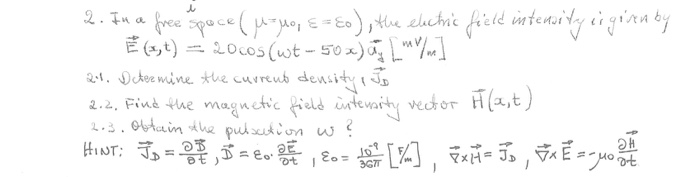 2. In a free space (μ=μ₀, ε=ε₀), the electric field intensity is given by
E⃗(x,t) = 20cos(ωt - 50x) a⃗y [mV/m]
2.1. Determine the current density, J⃗D
2.2. Find the magnetic field intensity vector H⃗(x,t)
2.3. Obtain the pulsation ω?
HINT: J⃗D = ∂D⃗/∂t, D⃗ = ε₀·∂E⃗/∂t, ε₀ = 10⁻⁹/36π [F/m], ∇⃗×H⃗ = J⃗D, ∇⃗×E⃗ = -μ₀ ∂H⃗/∂t